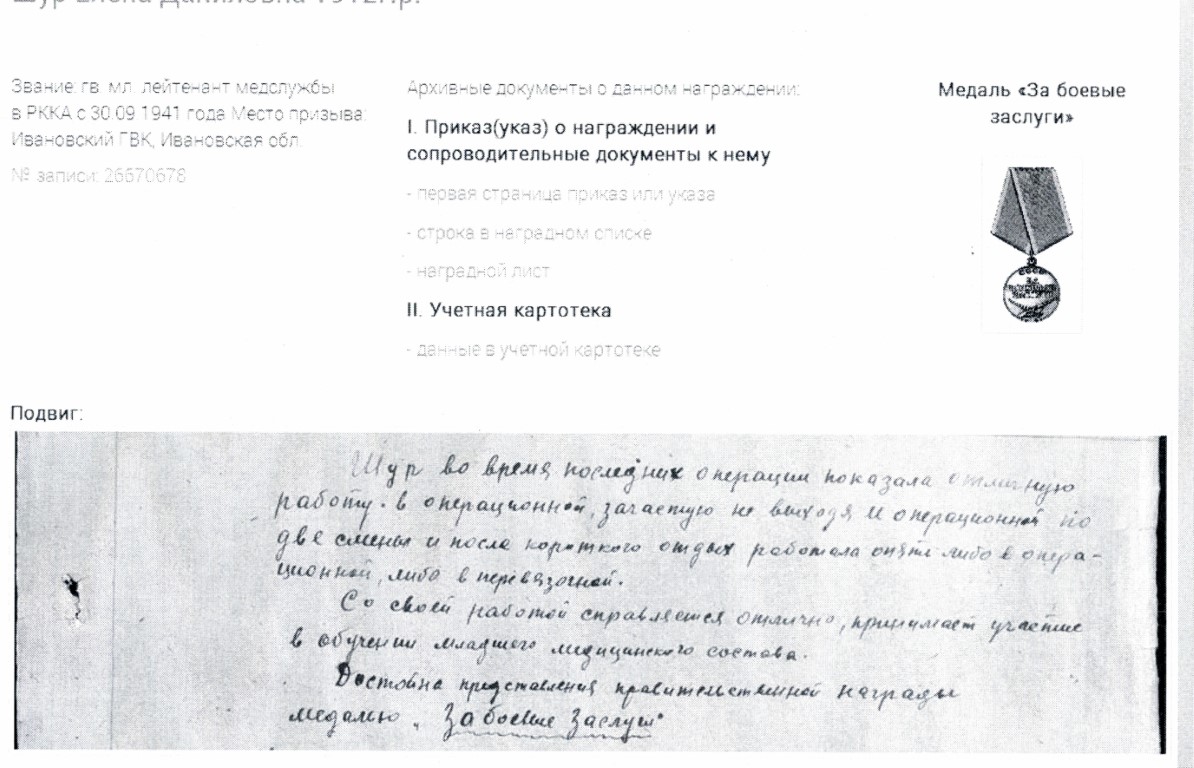 Шур Елена Даниловна 1912г.р.
Звание: гв. мл. лейтенант медслужбы
в РККА с 30.09.1941 года Место призыва:
Ивановский ГВК, Ивановская обл.
№ записи: 26670678
Архивные документы о данном награждении:
I. Приказ(указ) о награждении и
сопроводительные документы к нему
- первая страница приказ или указа
- строка в наградном списке
- наградной лист
II. Учетная картотека
- данные в учетной картотеке
Медаль «За боевые
заслуги»
Подвиг:
Шур во время последних операции показала отличную
работу. в операционной, зачастую не выходя и операционной по
две смены и после короткого отдых работала опять либо в опера-
ционной, либо в перевязочной.
Со своей работой справляется отлично, принимает участие
в обучении младшего медицинского состава.
Достойна представления правительственной награды
медалью „За боевые Заслуги"